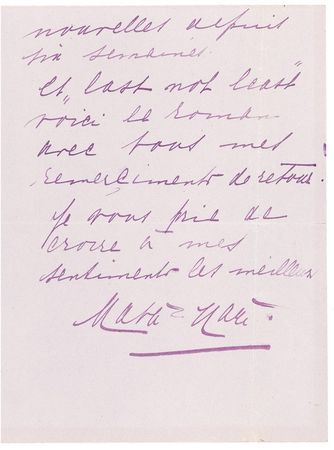 nouvelles depuis
six semaines.
Et last not least"
"voici le roman
avec tous mes
remerciments de retour.
Je vous prie de
croire à mes
sentiments les meilleurs
Mata-Hari.